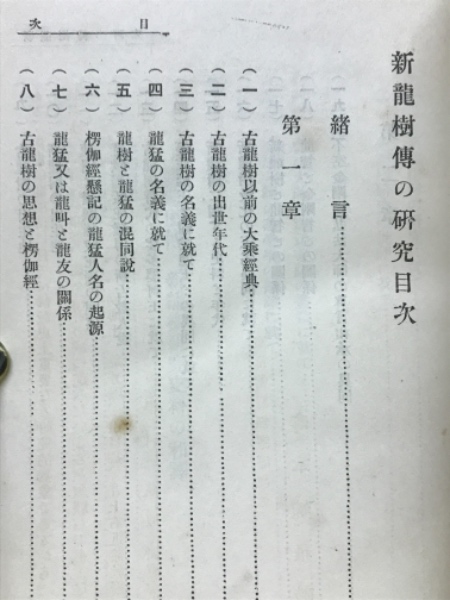 目次
新龍樹傳の研究目次
緒言
第一章
(一)古龍樹以前の大乘經典
(二)古龍樹の出世年代
(三)古龍樹の名義に就て
(四)龍猛の名義に就て
(五)龍樹と龍猛の混同說
(六)楞伽經懸記の龍猛人名の起源
(七)龍猛又は龍叫と龍友の關係
(八)古龍樹の思想と楞伽經